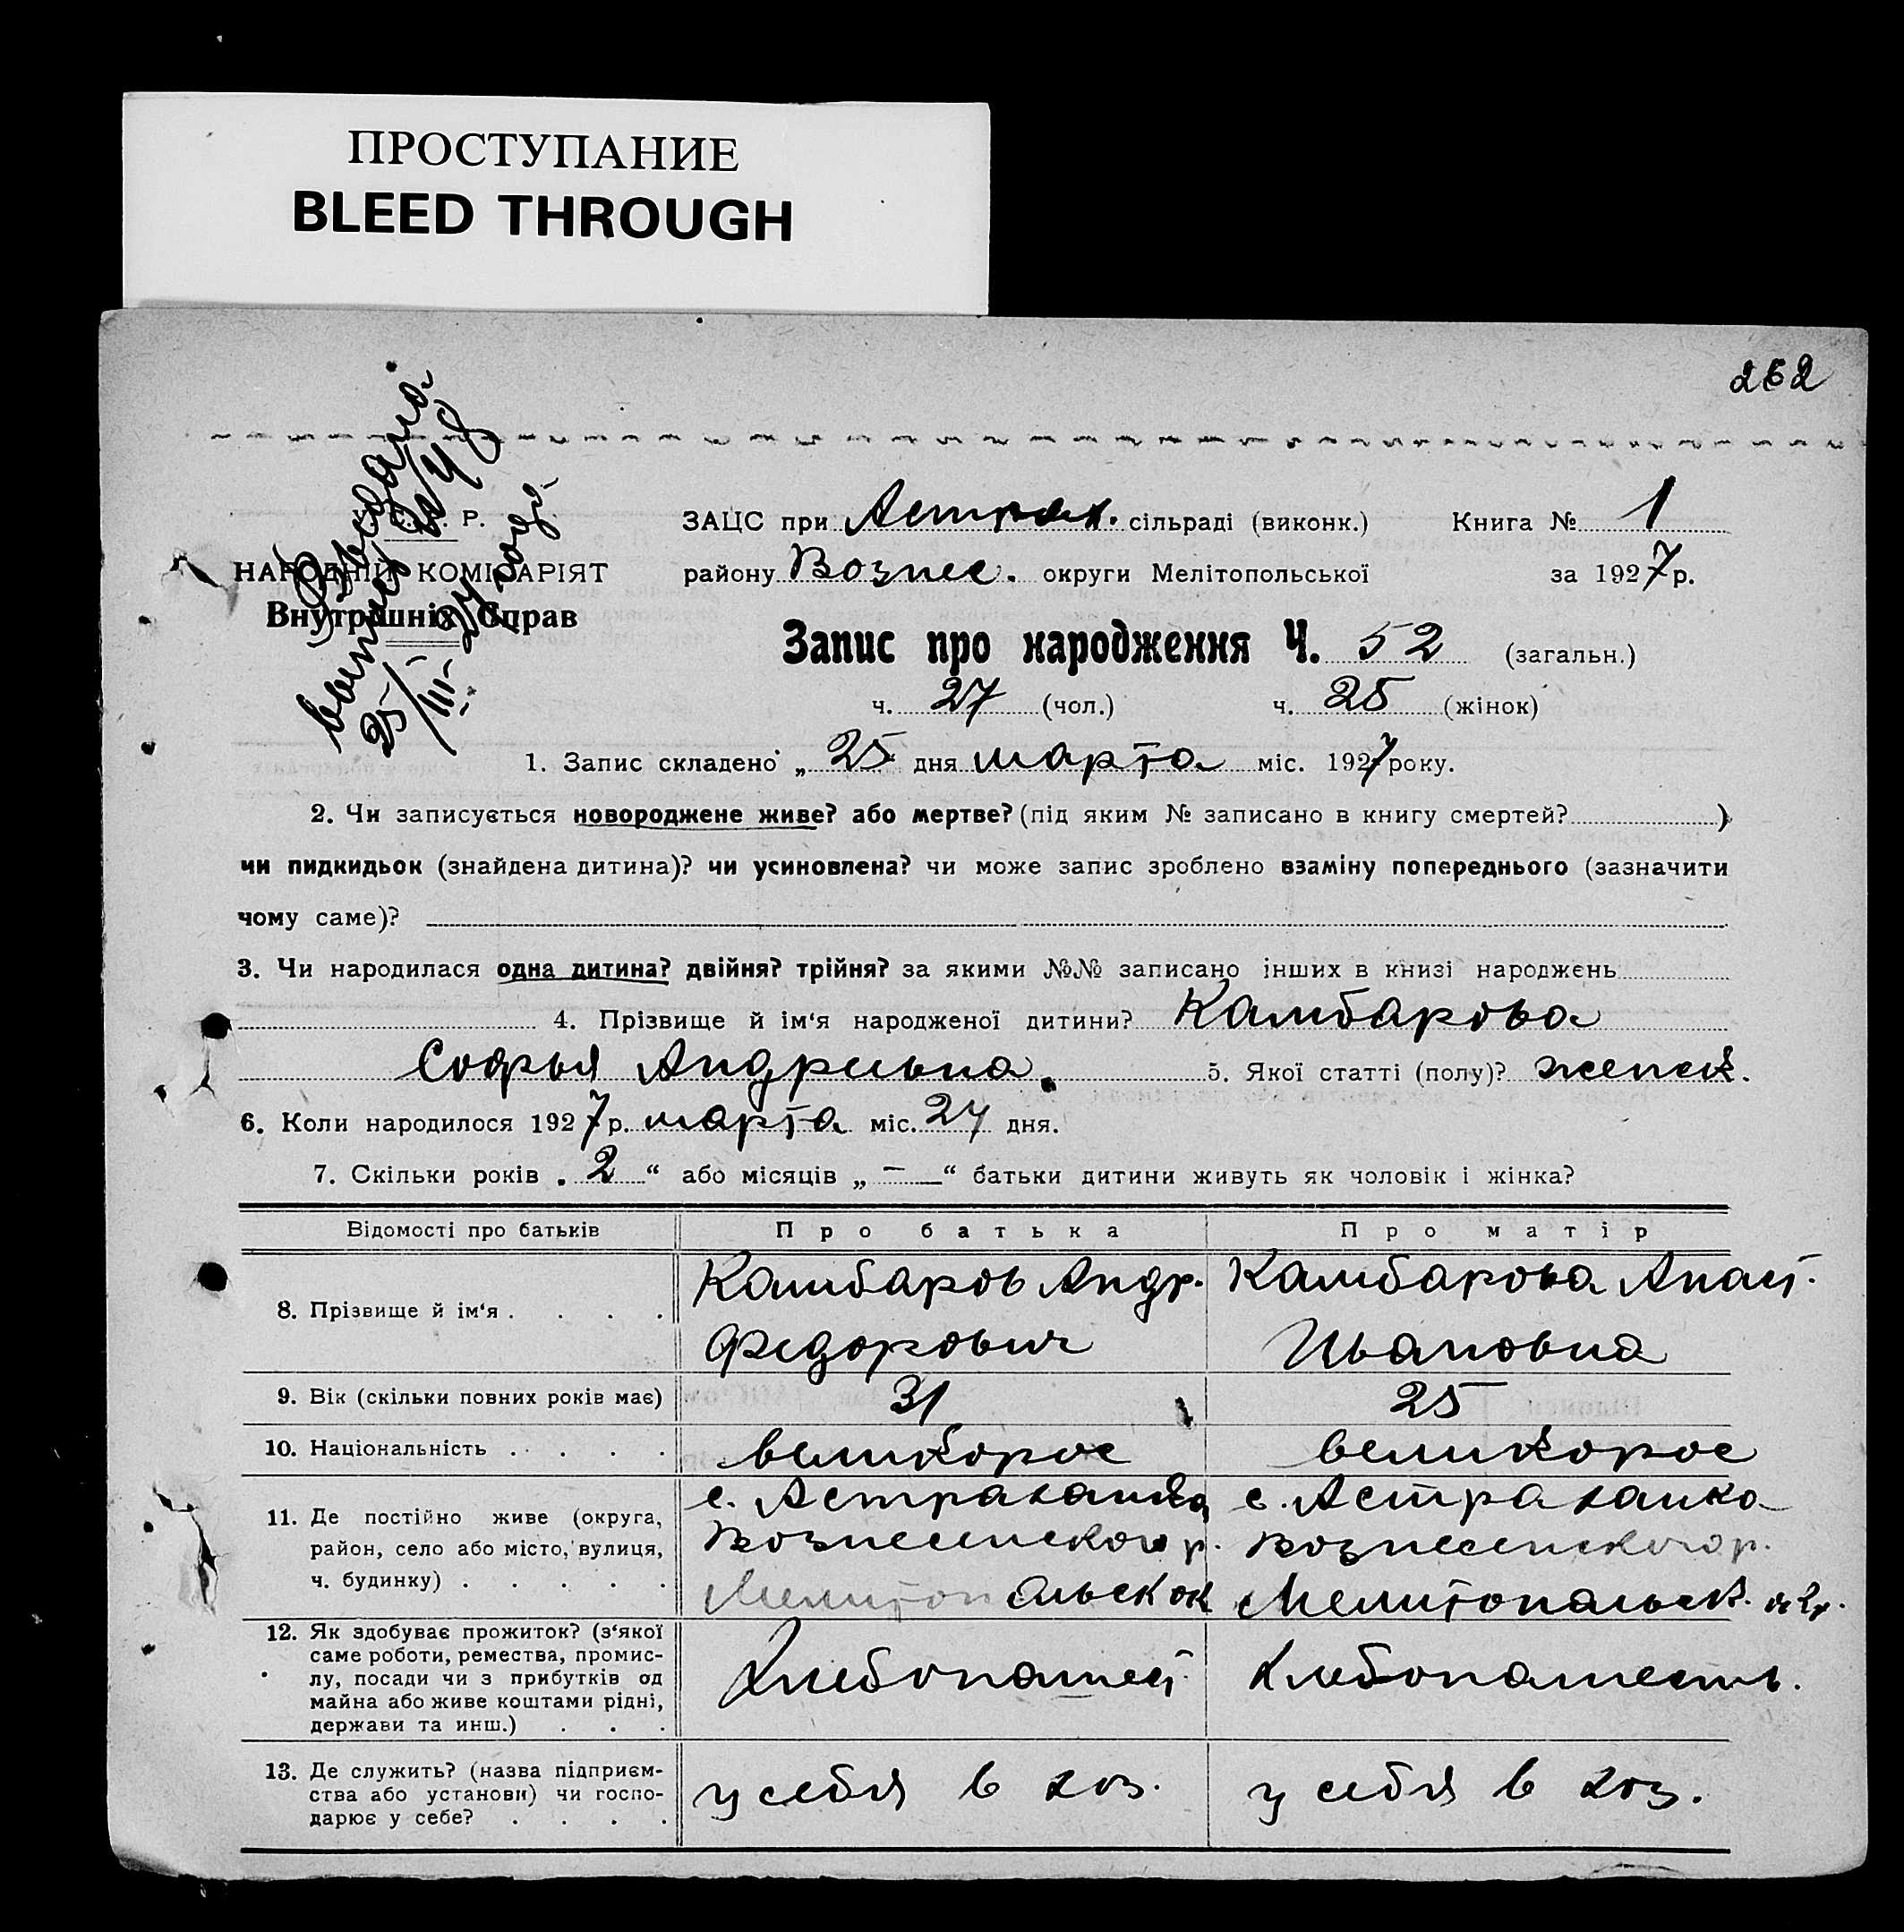 ПРОСТУПАНИЕ
BLEED THROUGH
262
Р.
НАРОДНІЙ КОМІСАРІЯТ
Внутрішніх Справ
25/III-
ЗАЦС при Астрах. сільраді (виконк.) Книга № 1
району Вознес. округи Мелітопольської за 1927 р.
Запис про народження Ч. 52 (загальн.)
ч. 27 (чол.) ч. 25 (жінок)
1. Запис складено „ 25 дня марта міс. 1927 року.
2. Чи записується новороджене живе? або мертве? (під яким № записано в книгу смертей? )
чи пидкидьок (знайдена дитина)? чи усиновлена? чи може запис зроблено взаміну попереднього (зазначити
чому саме)?
3. Чи народилася одна дитина? двійня? трійня? за якими №№ записано інших в книзі народжень
4. Прізвище й ім‘я народженої дитини? Камбарова
Софья Андреевна. 5. Якої статті (полу)? женск.
6. Коли народилося 1927 р. марта міс. 24 дня.
7. Скільки років „ 2 “ або місяців „ — “ батьки дитини живуть як чоловік і жінка?
Відомості про батьків Про батька Про матір
8. Прізвище й ім‘я . . . . Камбаров Андр. Камбарова Анаст.
Федорович Ивановна
9. Вік (скільки повних років має) 31 25
10. Національність . . . . великорос великорос
11. Де постійно живе (округа, с. Астраханка с. Астраханка
район, село або місто, вулиця, Вознесенского р. Вознесенского р.
ч. будинку) . . . . . Мелитопальск ок Мелитопальск. окр.
12. Як здобуває прожиток? (з‘якої
саме роботи, ремества, промис-
лу, посади чи з прибутків од Хлебопашест. Хлебопашеств.
майна або живе коштами рідні,
держави та инш.) . . .
13. Де служить? (назва підприєм-
ства або установи) чи госпо- у себя в хоз. у себя в хоз.
дарює у себе? . . . .